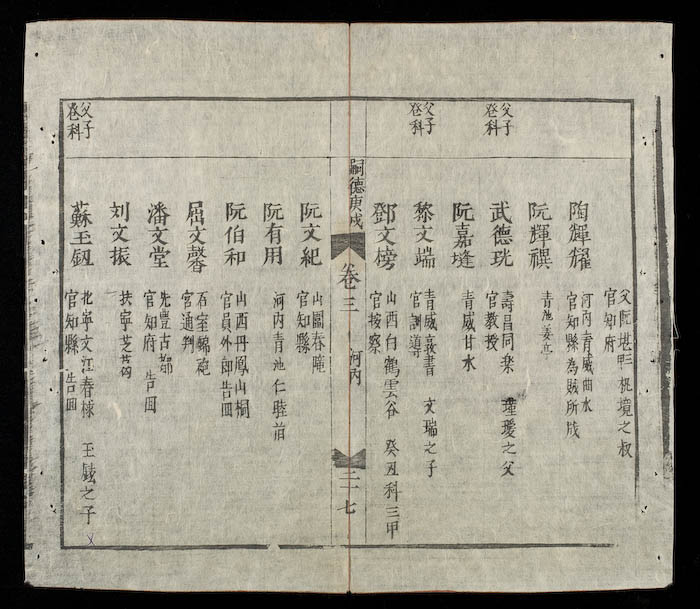 父阮堪甲三枇境之叔
官知府
陶輝耀
河内青威曲水
官知縣為賊所戕
阮輝禩
青池姜亭
父子
登科
武德珖
壽昌同樂 瑾璦之父
官教授
阮嘉㙺
青威甘水
父子
登科
黎文端
青威 書 文瑞之子
官訓導
鄧文榜
山西白鶴雲谷 癸丑科三甲
官按察
嗣德庚戌
卷三
河内
二十七
阮文紀
山圍春
官知縣
阮有用
河内青池仁睦前
阮伯和
山西丹鳳山桐
官員外郎告回
屈文馨
石室
官通判
潘文堂
先豐古都
官知府 告回
刘文振
扶寧芝
父子
登科
蘇玉
北寧文江春棟 玉鉉之子
官知縣 告回